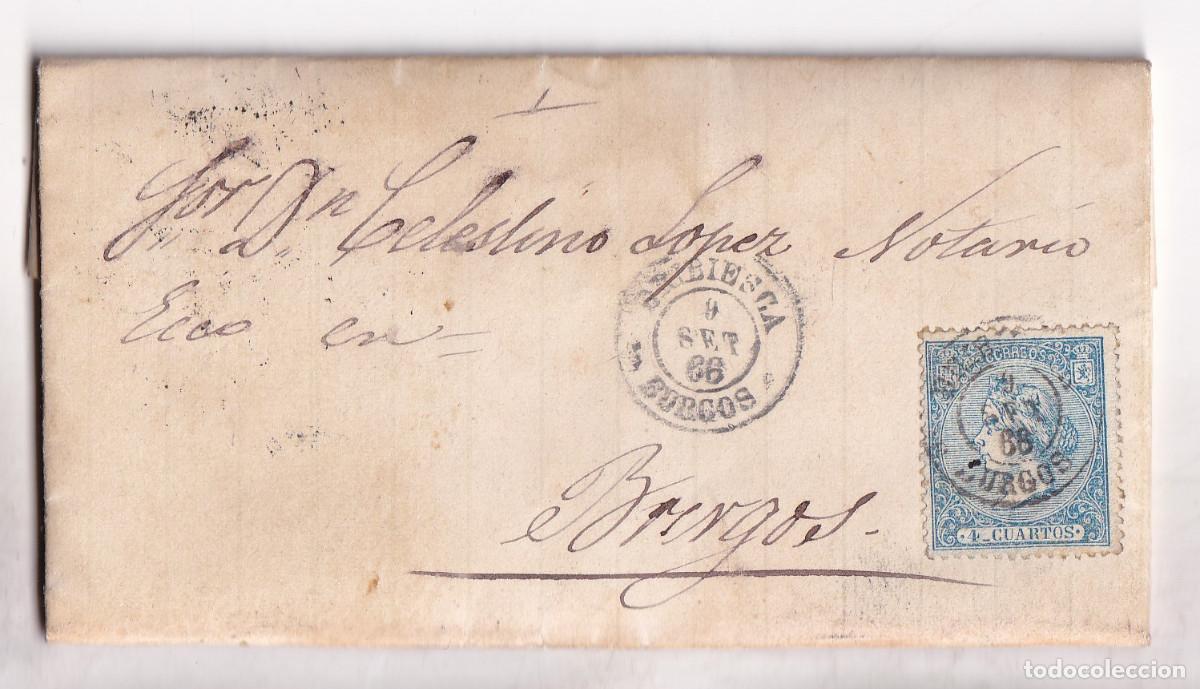 Sor Dn Celestino Lopez Notario
Ecco en=
BRIBIESCA
9
SET
66
BURGOS
CORREOS
9
SET
66
BURGOS
4_CUARTOS
Burgos.
todocoleccion